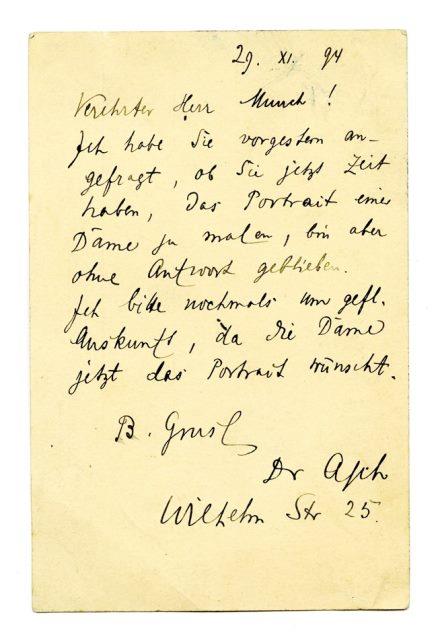 29. XI. 94
Verehrter Herr Munch!
Ich habe Sie vorgestern an-
gefragt, ob Sie jetzt Zeit
haben, das Portrait einer
Dame zu malen, bin aber
ohne Antwort geblieben.
Ich bitte nochmals um gefl.
Auskunft, da die Dame
jetzt das Portrait wünscht.
B. Gruß
Dr Asch
Wilhelm Str 25.